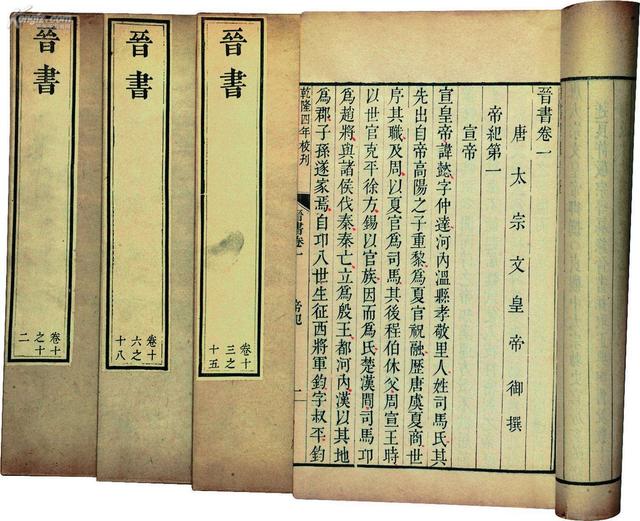 晉書卷一
唐太宗文皇帝御撰
帝紀第一
宣帝
宣皇帝諱懿字仲達河內溫縣孝敬里人姓司馬氏其
先出自帝高陽之子重黎爲夏官祝融歷唐虞夏商世
序其職及周以夏官爲司馬其後程伯休父周宣王時
以世官克平徐方錫以官族因而爲氏楚漢間司馬卬
爲趙將與諸侯伐秦秦亡立爲殷王都河內漢以其地
爲郡子孫遂家焉自卬八世生征西將軍鈞字叔平鈞
乾隆四年校刊
晉書卷一
帝紀
一
晉書
卷十
三之
十五
晉書
卷十
六之
十八
晉書
卷十
之十
二